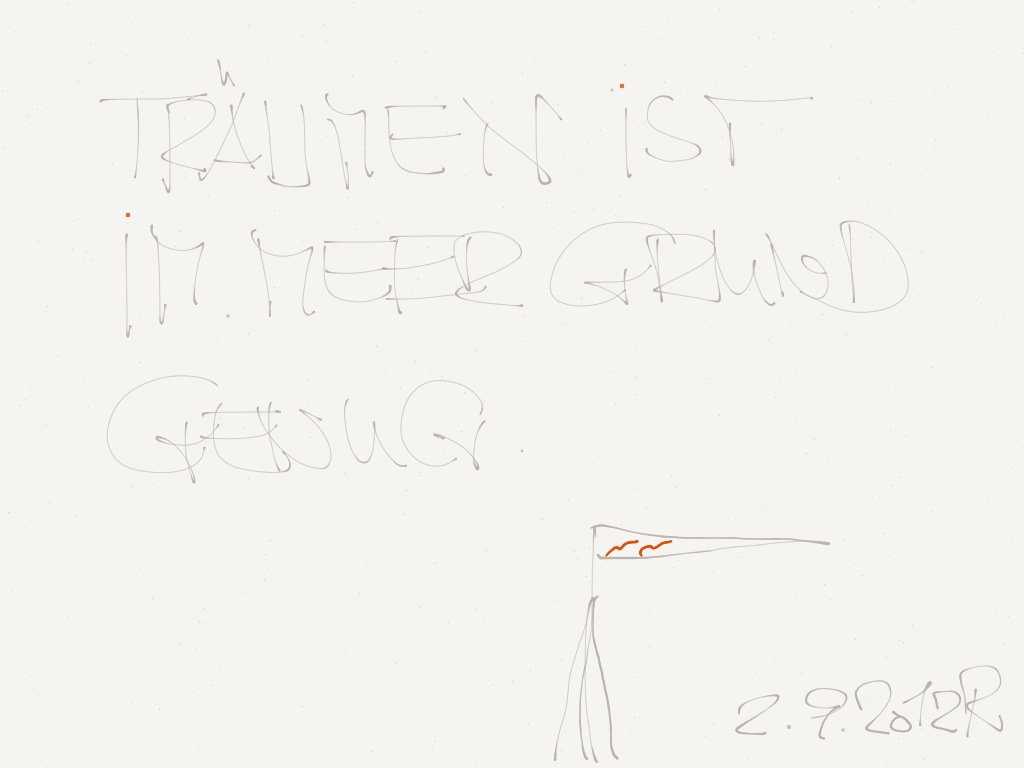 TRÄUMEN iST
iM.MEER GRUND
GENUG .
2.9.2012R